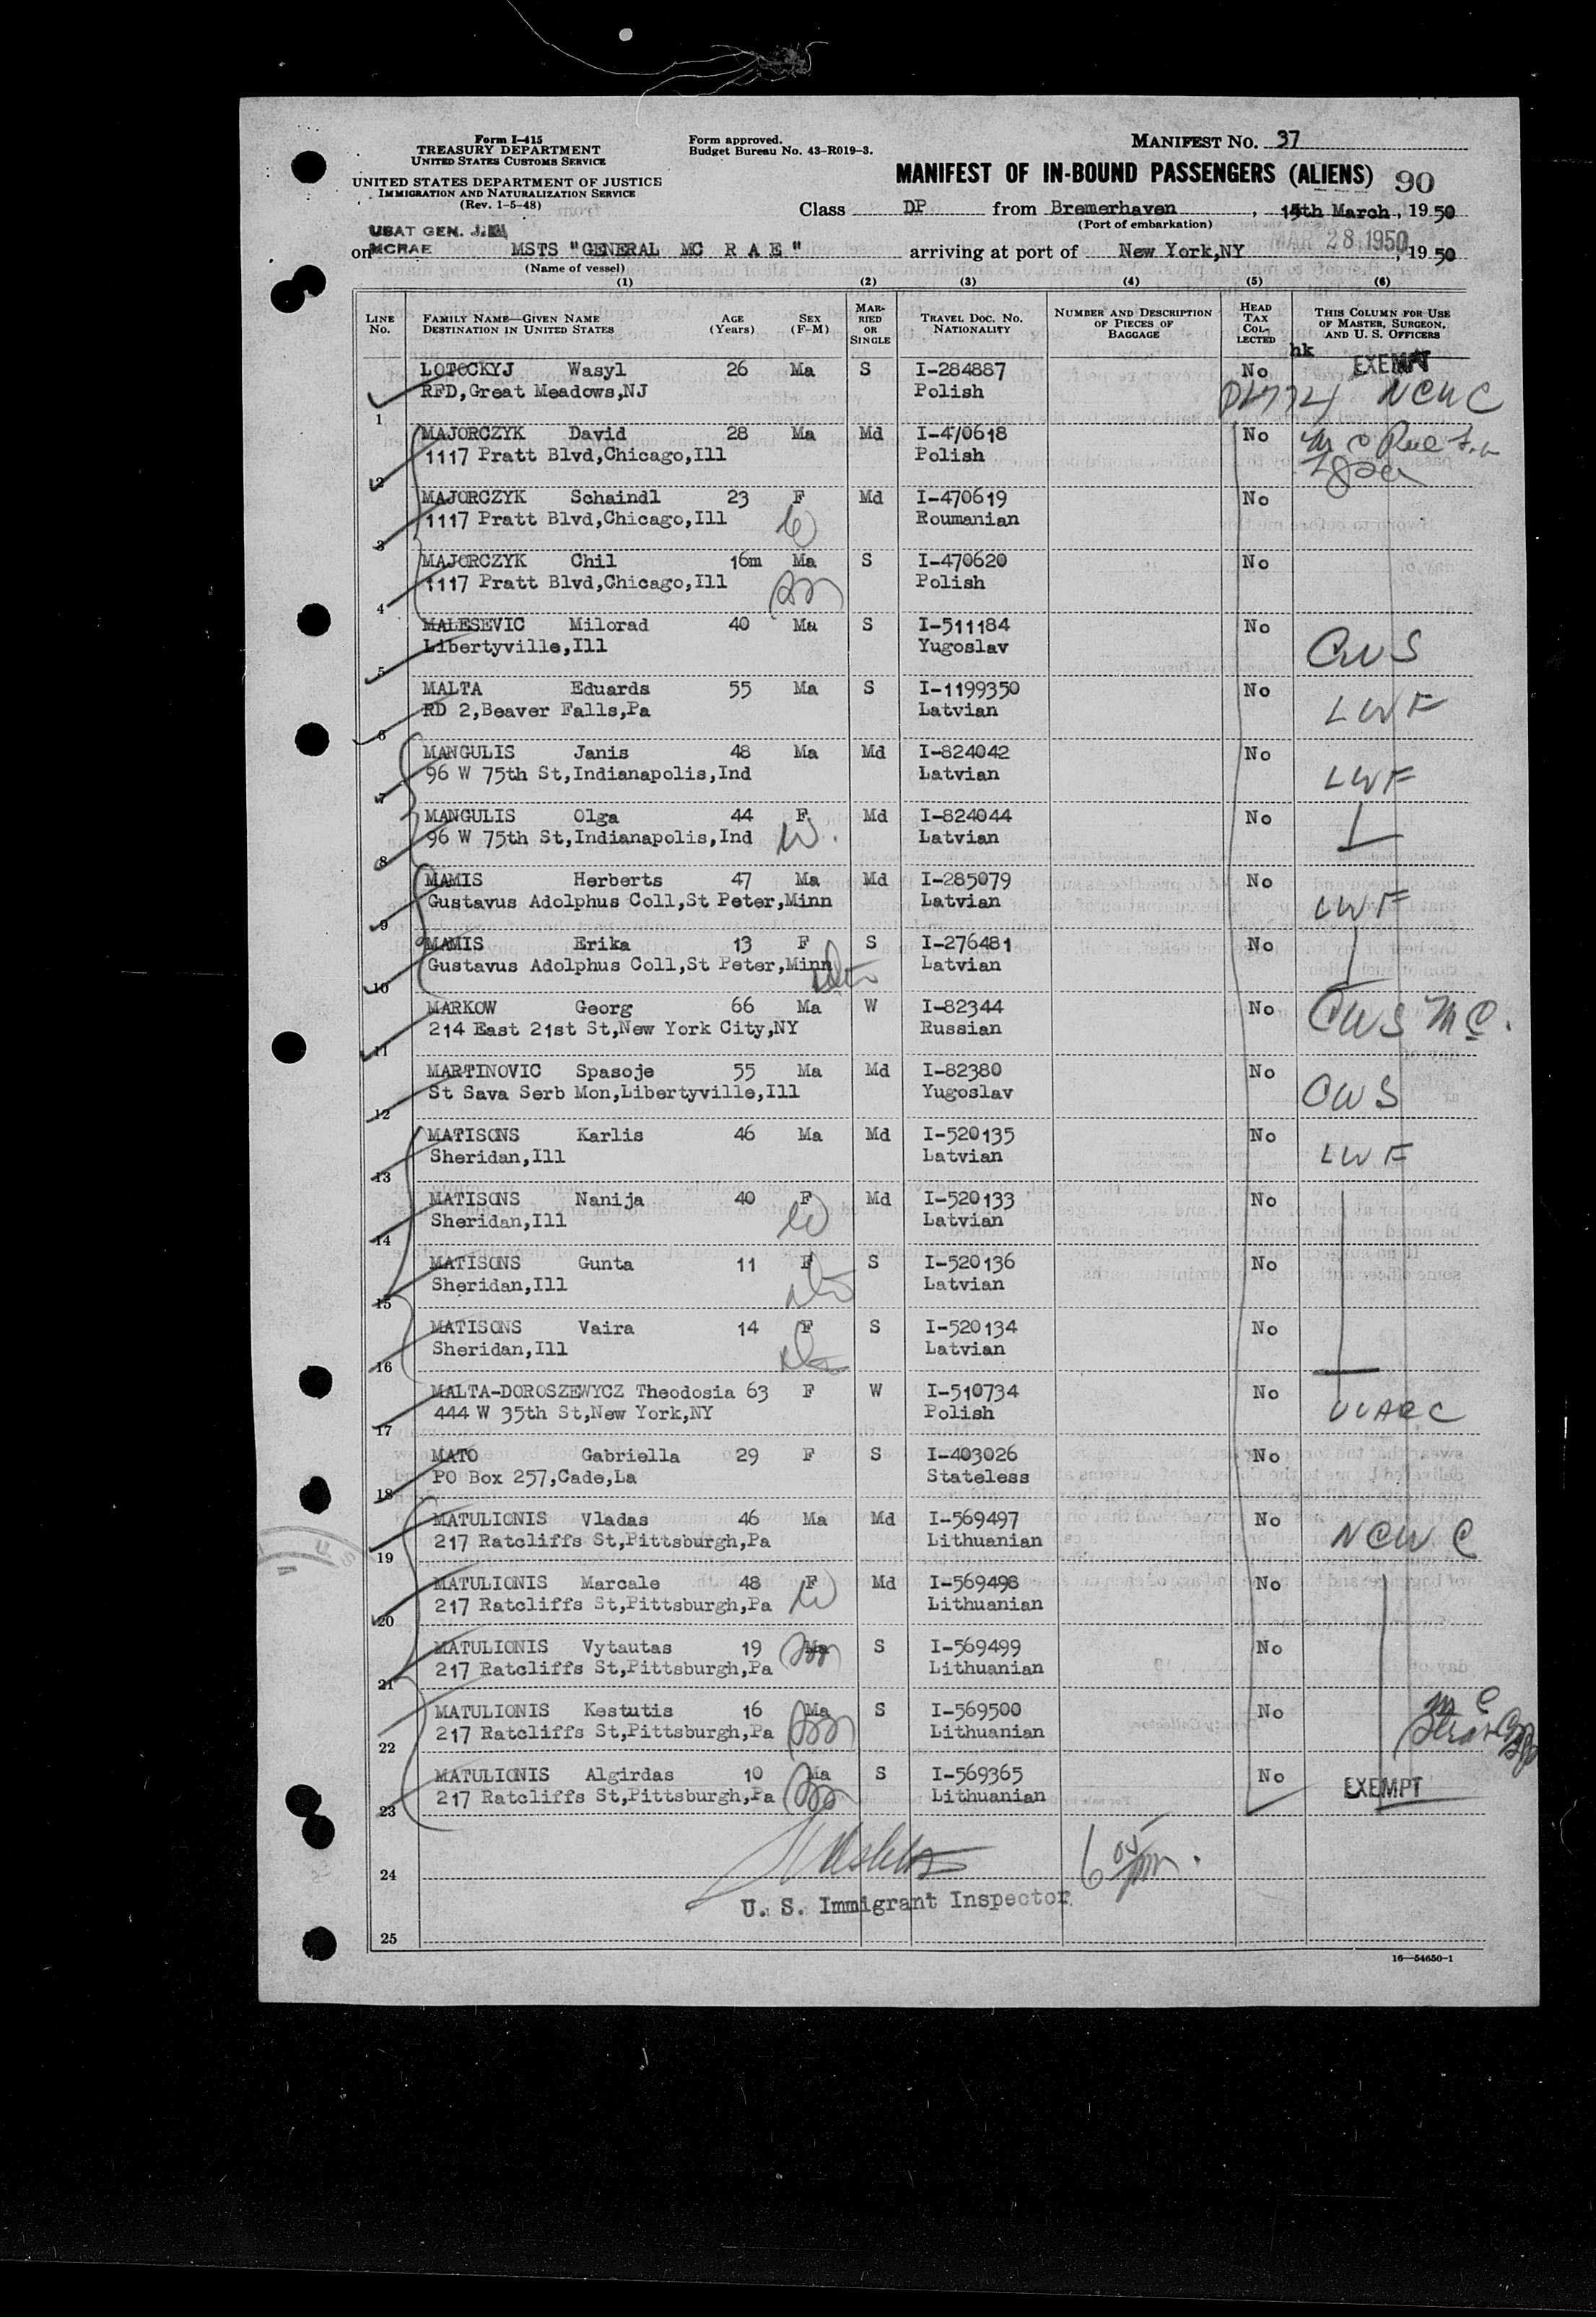 Form I-415
TREASURY DEPARTMENT
UNITED STATES CUSTOMS SERVICE
UNITED STATES DEPARTMENT OF JUSTICE
IMMIGRATION AND NATURALIZATION SERVICE
(Rev. 1-5-48)
Form approved.
Budget Bureau No. 43-R019-3.
MANIFEST NO. 37
MANIFEST OF IN-BOUND PASSENGERS (ALIENS) 90
Class DP from Bremerhaven, 15th March, 1950
(Port of embarkation)
USAT GEN.
MCRAE
on MSTS "GENERAL MC R A E" arriving at port of New York,NY MAR 28 1950, 1950
(Name of vessel)
(1) (2) (3) (4) (5) (6)
LINE No. FAMILY NAME—GIVEN NAME DESTINATION IN UNITED STATES AGE (Years) SEX (F-M) MARRIED OR SINGLE TRAVEL DOC. NO. NATIONALITY NUMBER AND DESCRIPTION OF PIECES OF BAGGAGE HEAD TAX COLLECTED THIS COLUMN FOR USE OF MASTER, SURGEON, AND U. S. OFFICERS
hk EXEMPT
LOTOCKYJ Wasyl 26 Ma S I-284887 No
1 RFD,Great Meadows,NJ Polish NCWC
MAJORCZYK David 28 Ma Md I-470618 No
2 1117 Pratt Blvd,Chicago,Ill Polish
MAJORCZYK Schaindl 23 F Md I-470619 No
3 1117 Pratt Blvd,Chicago,Ill W Roumanian
MAJORCZYK Chil 16m Ma S I-470620 No
4 1117 Pratt Blvd,Chicago,Ill Polish
MALESEVIC Milorad 40 Ma S I-511184 No
5 Libertyville,Ill Yugoslav CWS
MALTA Eduards 55 Ma S I-1199350 No
6 RD 2,Beaver Falls,Pa Latvian LWF
MANGULIS Janis 48 Ma Md I-824042 No
7 96 W 75th St,Indianapolis,Ind Latvian LWF
MANGULIS Olga 44 F Md I-824044 No
8 96 W 75th St,Indianapolis,Ind W. Latvian
MAMIS Herberts 47 Ma Md I-285079 No
9 Gustavus Adolphus Coll,St Peter,Minn Latvian LWF
MAMIS Erika 13 F S I-276481 No
10 Gustavus Adolphus Coll,St Peter,Minn Latvian
MARKOW Georg 66 Ma W I-82344 No CWS MC.
11 214 East 21st St,New York City,NY Russian
MARTINOVIC Spasoje 55 Ma Md I-82380 No
12 St Sava Serb Mon,Libertyville,Ill Yugoslav CWS
MATISONS Karlis 46 Ma Md I-520135 No
13 Sheridan,Ill Latvian LWF
MATISONS Nanija 40 F Md I-520133 No
14 Sheridan,Ill W Latvian
MATISONS Gunta 11 F S I-520136 No
15 Sheridan,Ill Latvian
MATISONS Vaira 14 F S I-520134 No
16 Sheridan,Ill Latvian
MALTA-DOROSZEWYCZ Theodosia 63 F W I-510734 No
17 444 W 35th St,New York,NY Polish UUARC
MATO Gabriella 29 F S I-403026 No
18 PO Box 257,Cade,La Stateless
MATULIONIS Vladas 46 Ma Md I-569497 No
19 217 Ratcliffs St,Pittsburgh,Pa Lithuanian NCWC
MATULIONIS Marcale 48 F Md I-569498 No
20 217 Ratcliffs St,Pittsburgh,Pa W Lithuanian
MATULIONIS Vytautas 19 Ma S I-569499 No
21 217 Ratcliffs St,Pittsburgh,Pa Lithuanian
MATULIONIS Kestutis 16 Ma S I-569500 No
22 217 Ratcliffs St,Pittsburgh,Pa Lithuanian
MATULIONIS Algirdas 10 Ma S I-569365 No
23 217 Ratcliffs St,Pittsburgh,Pa Lithuanian EXEMPT
24 6 05 pm.
U. S. Immigrant Inspector
25
16—54650-1